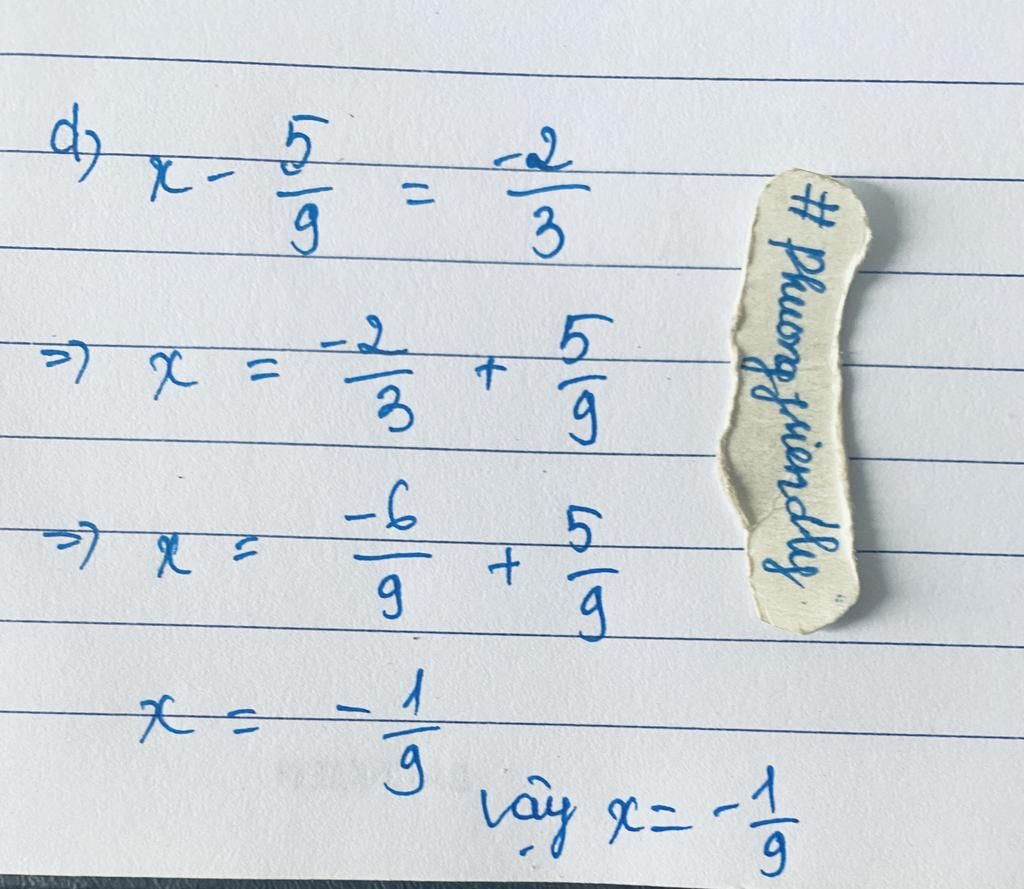 d) x - 5/9 = -2/3
=> x = -2/3 + 5/9
=> x = -6/9 + 5/9
x = - 1/9
Vậy x = - 1/9
# phuongfriendly